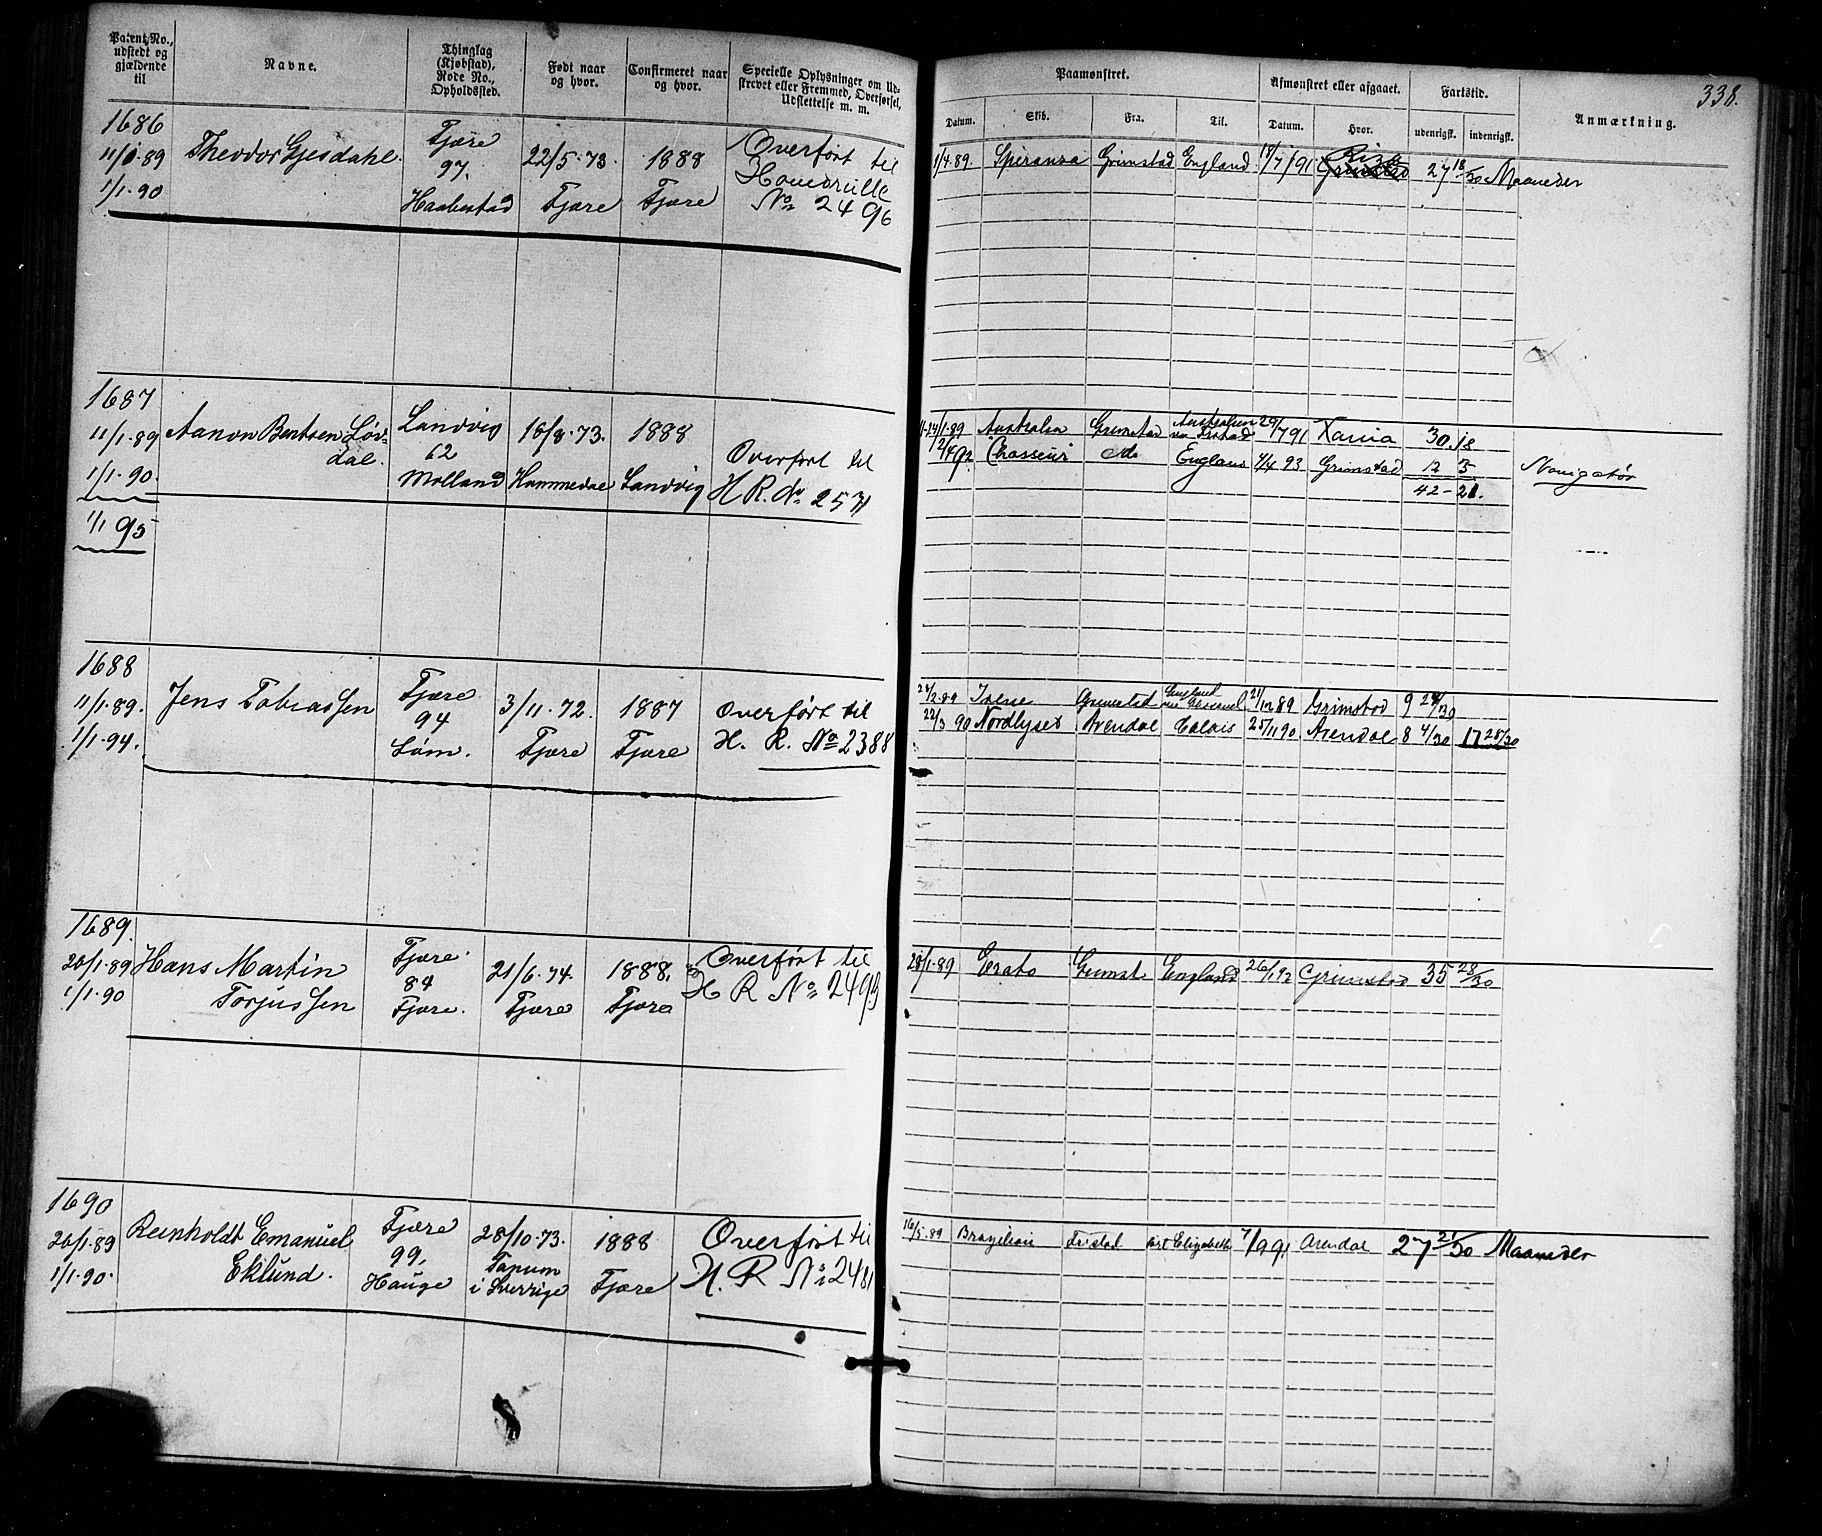 338.
Patent No., udstedt og gjældende til
Navne.
Thinglag (Kjøbstad), Rode No., Opholdssted.
Født naar og hvor.
Confirmeret naar og hvor.
Specielle Oplysninger om Udskrevet eller Fremmed, Overførsel, Udslettelse m. m.
Paamønstret.
Afmønstret eller afgaaet.
Fartstid.
Anmærkning.
Datum.
Skib.
Fra.
Til.
Datum.
Hvor.
udenrigsk.
indenrigsk.
1686
11/1 89
1/1 90
Theodor Gjesdahl.
Fjære
97.
22/5-73.
Fjære
1888
Fjære
Overført til
Hovedrulle
No 2496
1/4 89. Speranza Grimstad England 18/7 91 27 18/30 Maaneder
1687
11/1-89
1/1-90.
1/1 95
Aanon Bentsen Løv-
dal.
Landvig
62
Molland
1888
Landvig
Overført til
H R. No
Australia Grimstad 30.18
12/4 92 Chasseur do England 1/4 93 Grimstad 12 3
42-21.
Navigatør
1688
11/1-89.
1/1-94.
Jens Tobiassen
Fjære
94
Løm.
3/11-72.
Fjære
1887
Fjære
Overført til
H. R. No 2388
Grimstad 21/12 89 Grimstad 9 24/30
22/3 90 Nordlyset Arendal Calais 25/11 90 Arendal 8 4/30 17 28/30
1689.
20/1-89
1/1-90
Hans Martin
Torjussen
Fjære
84
Fjære.
21/6-74.
Fjære
1888.
Fjære
Overført til
H R No 2493
28/1-89 Erato Grimst England 26/1 92 Grimstad 35 28/30
1690
20/1-89
1/1-90.
Reinholdt Emanuel
Eklund.
Fjære
99,
Hauge
28/10-73.
Tanum
i Sverrige
1888
Fjære
Overført til
H. R No 2481
16/5-89 Port Elizabeth 7/9 91 Arendal 27 21/30 Maaneder